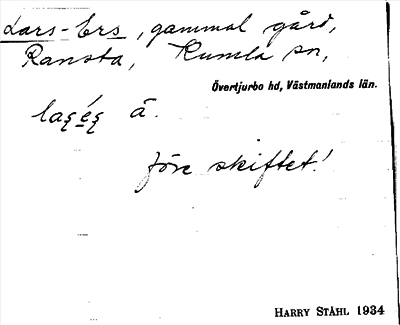 Lars-Ers, gammal gård,
Ransta, Kumla sn,
Övertjurbo hd, Västmanlands län.
å.
före skiftet!
HARRY STÅHL 1934